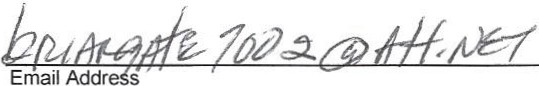 BRIARGATE7002@ATT.NET
Email Address